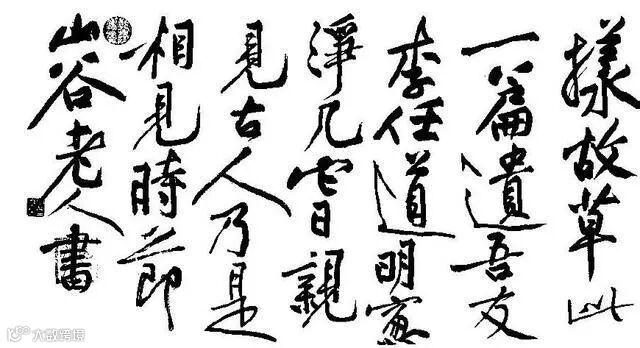 樣故草此
一篇遺吾友
李任道明窗
淨几它日親
見古人乃是
相見時節
山谷老人書
大数跨境